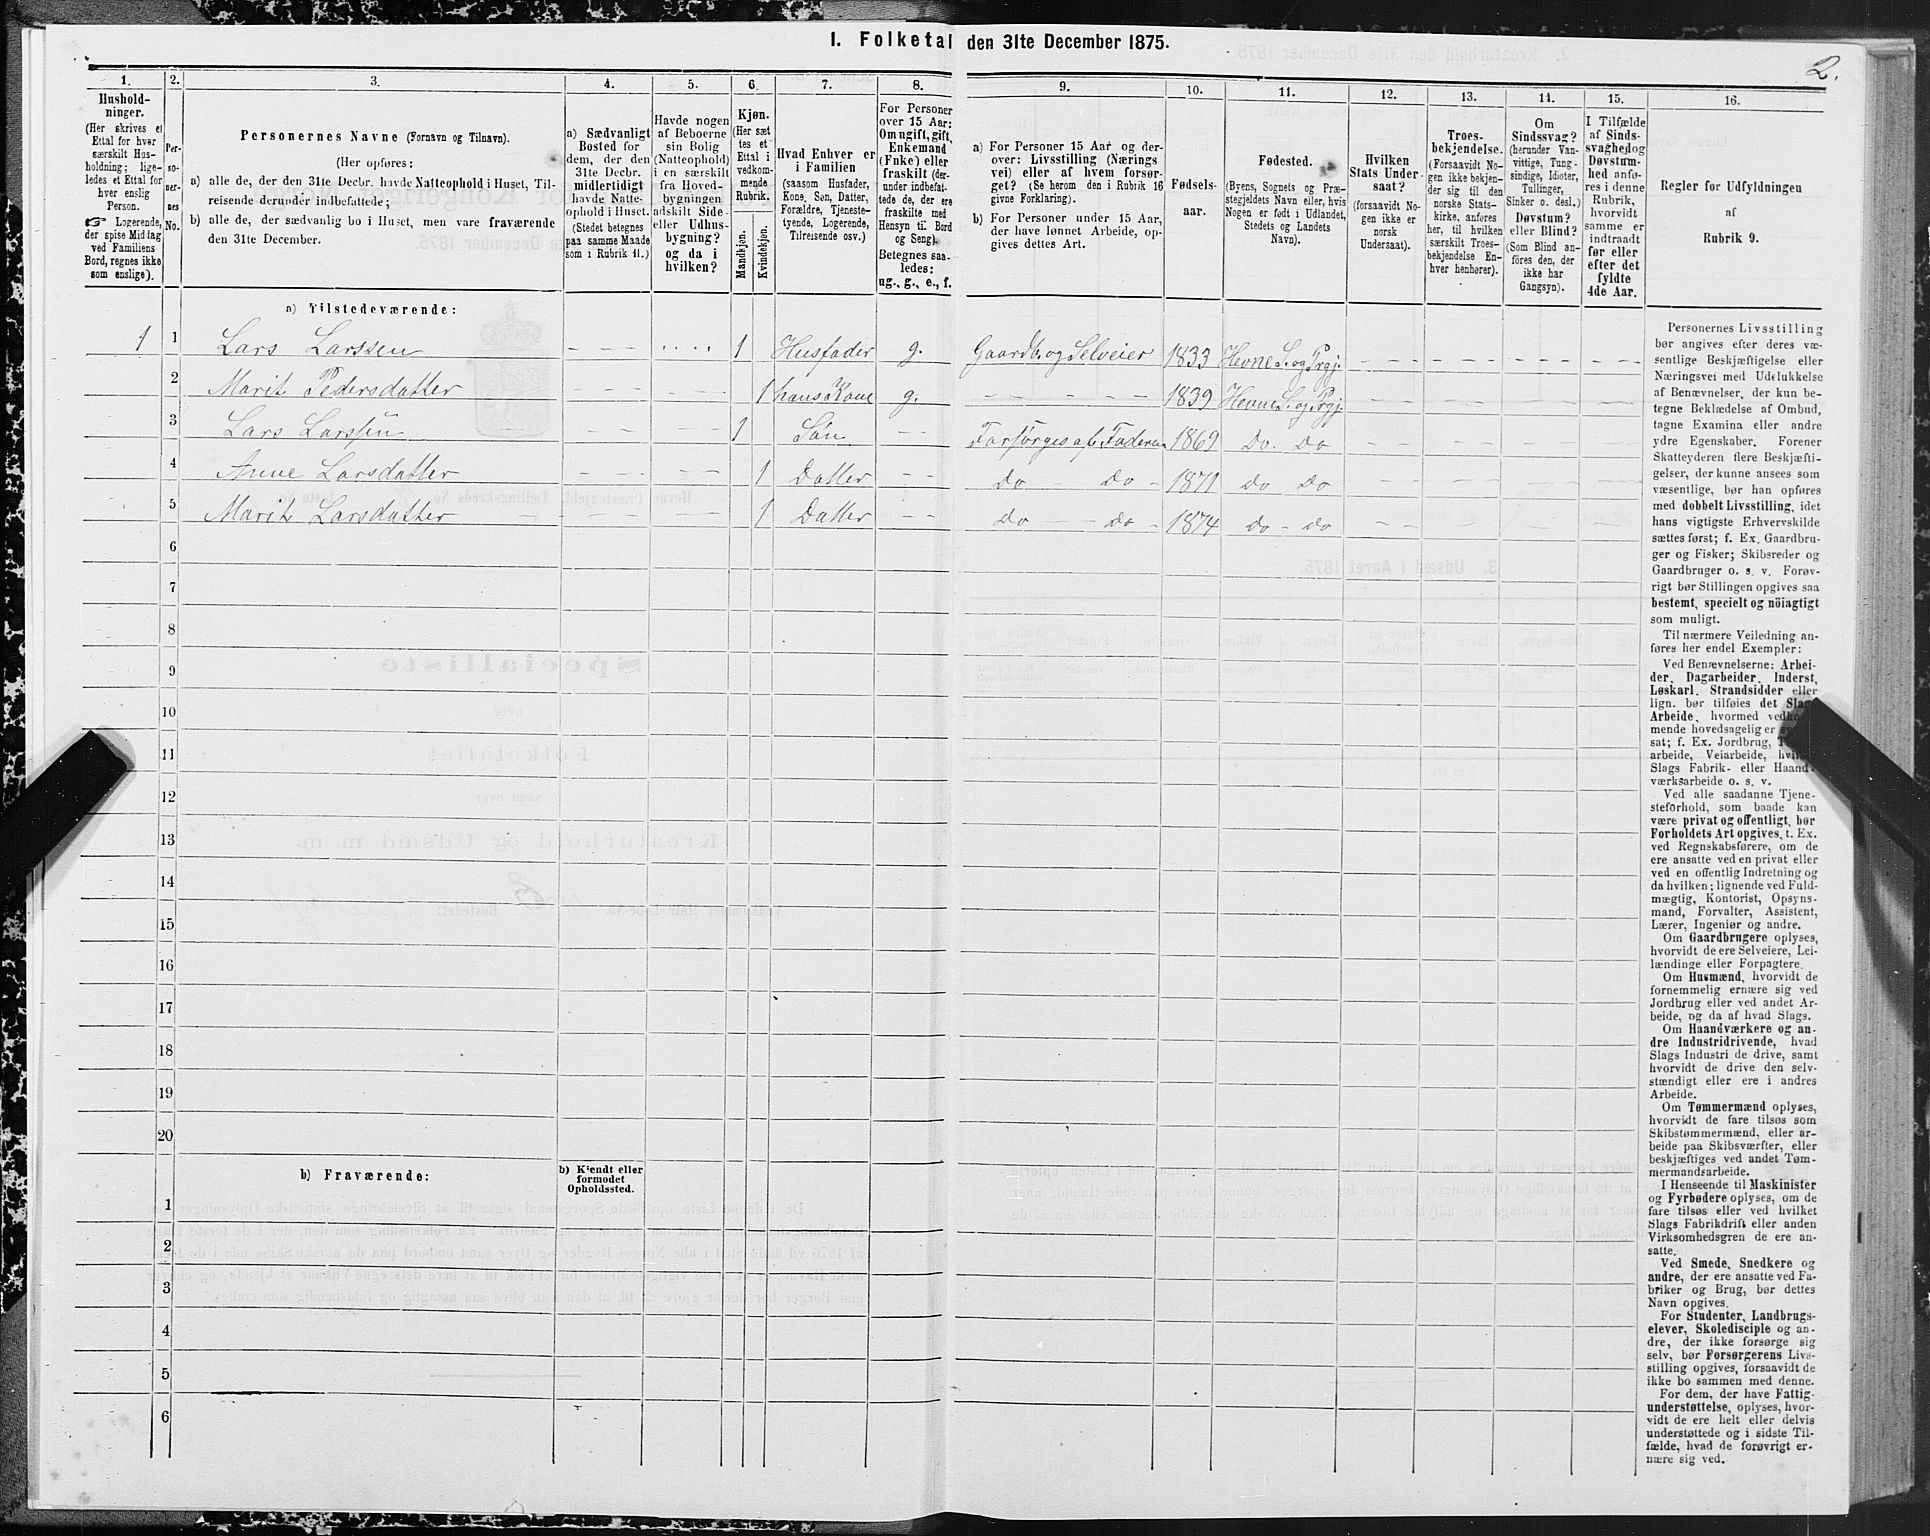 1. Folketal den 31te December 1875.
2.
1. 2. 3. 4. 5. 6. 7. 8. 9. 10. 11. 12. 13. 14. 15. 16.
Hushold-
ninger.
(Her skrives et
Ettal for hver
særskilt Hus-
holdning; lige-
ledes et Ettal for
hver enslig
Person.
☞ Logerende,
der spise Middag
ved Familiens
Bord, regnes ikke
som enslige).
Per-
so-
ner-
nes
No.
Personernes Navne (Fornavn og Tilnavn).
(Her opføres:
a) alle de, der den 31te Decbr. havde Natteophold i Huset, Til-
reisende derunder indbefattede;
b) alle de, der sædvanlig bo i Huset, men vare fraværende
den 31te December.
a) Sædvanligt
Bosted for
dem, der den
31te Decbr.
midlertidigt
havde Natte-
ophold i Huset.
(Stedet betegnes
paa samme Maade
som i Rubrik 11.)
Havde nogen
af Beboerne
sin Bolig
(Natteophold)
i en særskilt
fra Hoved-
bygningen
adskilt Side-
eller Udhus-
bygning?
og da i
hvilken?
Kjøn.
(Her sæt
tes et
Ettal i
vedkom-
mende
Rubrik.
Mandkjøn.
Kvindekjøn.
Hvad Enhver er
i Familien
(saasom Husfader,
Kone, Søn, Datter,
Forældre, Tjeneste-
tyende, Logerende,
Tilreisende osv.)
For Personer
over 15 Aar:
Om ugift, gift,
Enkemand
(Enke) eller
fraskilt (der-
under indbefat-
tede de, der ere
fraskilte med
Hensyn til Bord
og Seng).
Betegnes saa-
ledes:
ug., g., e., f.
a) For Personer 15 Aar og der-
over: Livsstilling (Nærings
vei) eller af hvem forsør-
get? (Se herom den i Rubrik 16
givne Forklaring).
b) For Personer under 15 Aar,
der have lønnet Arbeide, op-
gives dettes Art.
Fødsels-
aar.
Fødested.
(Byens, Sognets og Præ-
stegjeldets Navn eller, hvis
Nogen er født i Udlandet,
Stedets og Landets
Navn).
Hvilken
Stats Under-
saat?
(forsaavidt No-
gen ikke er
norsk
Undersaat).
Troes-
bekjendelse.
(Forsaavidt No-
gen ikke bekjen-
der sig til den
norske Stats-
kirke, anføres
her, til hvilken
særskilt Troes-
bekjendelse En-
hver henhører).
Om
Sindssvag?
(herunder Van-
vittige, Tung-
sindige, Idioter,
Tullinger,
Sinker o. desl.)
Døvstum?
eller Blind?
(Som Blind an-
føres den, der
ikke har
Gangsyn).
I Tilfælde
af Sinds-
svaghed og
Døvstum-
hed anfø-
res i denne
Rubrik,
hvorvidt
samme er
indtraadt
før eller
efter det
fyldte
4de Aar.
Regler for Udfyldningen
af
Rubrik 9.
a) Tilstedeværende:
1 1 Lars Larssen - - - .... 1 Husfader g. Gaardb. og Selveier 1833 Hevne S. og Prgj.
2 Marit Pedersdatter 1 hans Kone g. 1839 Hevne S. og Prgj.
3 Lars Larssen 1 Søn Forsørges af Faderen 1869 Do. Do
4 Anne Larsdatter 1 Datter Do Do 1871 Do Do
5 Marit Larsdatter 1 Datter Do Do 1874 Do - Do
6
7
8
9
10
11
12
13
14
15
16
17
18
19
20
b) Fraværende:
b) Kjendt eller
formodet
Opholdssted.
1
2
3
4
5
6
Personernes Livsstilling
bør angives efter deres væ-
sentlige Beskjæftigelse eller
Næringsvei med Udelukkelse
af Benævnelser, der kun be-
tegne Beklædelse af Ombud,
tagne Examina eller andre
ydre Egenskaber. Forener
Skatteyderen flere Beskjæfti-
gelser, der kunne ansees som
væsentlige, bør han opføres
med dobbelt Livsstilling, idet
hans vigtigste Erhvervskilde
sættes først; f. Ex. Gaardbru-
ger og Fisker; Skibsreder og
Gaardbruger o. s. v. Forøv-
rigt bør Stillingen opgives saa
bestemt, specielt og nöiagtigt
som muligt.
Til nærmere Veiledning an-
føres her endel Exempler:
Ved Benævnelserne: Arbei-
der, Dagarbeider, Inderst,
Løskarl, Strandsidder eller
lign. bør tilføies det Slags
Arbeide, hvormed vedkom-
mende hovedsagelig er
sat; f. Ex. Jordbrug,
arbeide, Veiarbeide,
Slags Fabrik- eller Haand-
værksarbeide o. s. v.
Ved alle saadanne Tjene-
steforhold, som baade kan
være privat og offentligt, bør
Forholdets Art opgives, t. Ex.
ved Regnskabsførere, om de
ere ansatte ved en privat eller
ved en offentlig Indretning og
da hvilken; lignende ved Fuld-
mægtig, Kontorist, Opsyns-
mand, Forvalter, Assistent,
Lærer, Ingeniør og andre.
Om Gaardbrugere oplyses,
hvorvidt de ere Selveiere, Lei-
lændinge eller Forpagtere.
Om Husmænd, hvorvidt de
fornemmelig ernære sig ved
Jordbrug eller ved andet Ar-
beide, og da af hvad Slags.
Om Haandværkere og an-
dre Industridrivende, hvad
Slags Industri de drive, samt
hvorvidt de drive den selv-
stændigt eller ere i andres
Arbeide.
Om Tømmermænd oplyses,
hvorvidt de fare tilsøs som
Skibstømmermænd, eller ar-
beide paa Skibsværfter, eller
beskjæftiges ved andet Tøm-
mermandsarbeide.
I Henseende til Maskinister
og Fyrbødere oplyses, om de
fare tilsøs eller ved hvilket
Slags Fabrikdrift eller anden
Virksomhedsgren de ere an-
satte.
Ved Smede, Snedkere og
andre, der ere ansatte ved Fa-
briker og Brug, bør dettes
Navn opgives.
For Studenter, Landbrugs-
elever, Skoledisciple og an-
dre, der ikke forsørge sig
selv, bør Forsørgerens Livs-
stilling opgives, forsaavidt de
ikke bo sammen med denne.
For dem, der have Fattig-
understøttelse, oplyses, hvor-
vidt de ere helt eller delvis
understøttede og i sidste Til-
fælde, hvad de forøvrigt er-
nære sig ved.